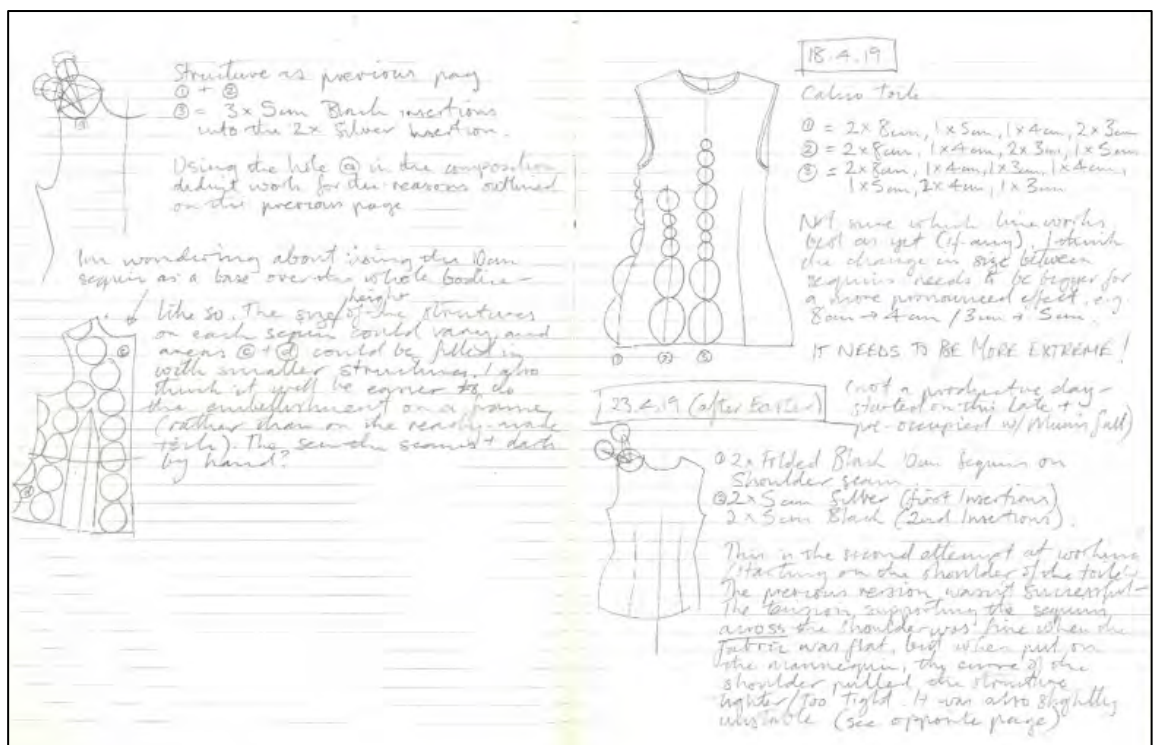 Structure as previous page
① + ②
③ = 3 x 5cm Black insertions
into the 2x Silver insertion.
Using the hole ⓐ in the composition
didn't work for the reasons outlined
on the previous page
Im wondering about using the 10cm
sequin as a base over the whole bodice –
like so. The size/height of the structures
on each sequin could vary, and
areas ⓒ + ⓓ could be filled in
with smaller structures. I also
think it will be easier to do
the embellishment on a frame
(rather than on the ready-made
toile). The sew the seams + darts
by hand?
18.4.19
Calico Toile
① = 2x 8cm, 1 x 5cm, 1 x 4cm, 2 x 3cm
② = 2x 8cm, 1x 4cm, 2x 3cm, 1 x 5cm
③ = 2x 8cm, 1x 4cm, 1x 3cm, 1x 4cm,
1 x 5cm, 2x 4cm, 1x 3cm
Not sure which line works
best as yet (if any). I think
the change in size between
sequins needs to be bigger for
a more pronounced effect. e.g.
8cm → 4cm / 3cm → 5cm.
IT NEEDS TO BE MORE EXTREME!
① ② ③
23.4.19 (after Easter)
(not a productive day –
started on this late +
pre-occupied w/ Mums fall)
2x Folded Black 10cm Sequins on
Shoulder seam.
2x 5cm Silver (first Insertions)
2x 5cm Black (2nd Insertions).
This is the second attempt at working
/starting on the shoulder of the toile.
The previous version wasn't successful –
The tension supporting the sequins
across the shoulder was fine when the
fabric was flat, but when put on
the mannequin, the curve of the
shoulder pulled the structure
tighter/too tight. It was also slightly
unstable (see opposite page)